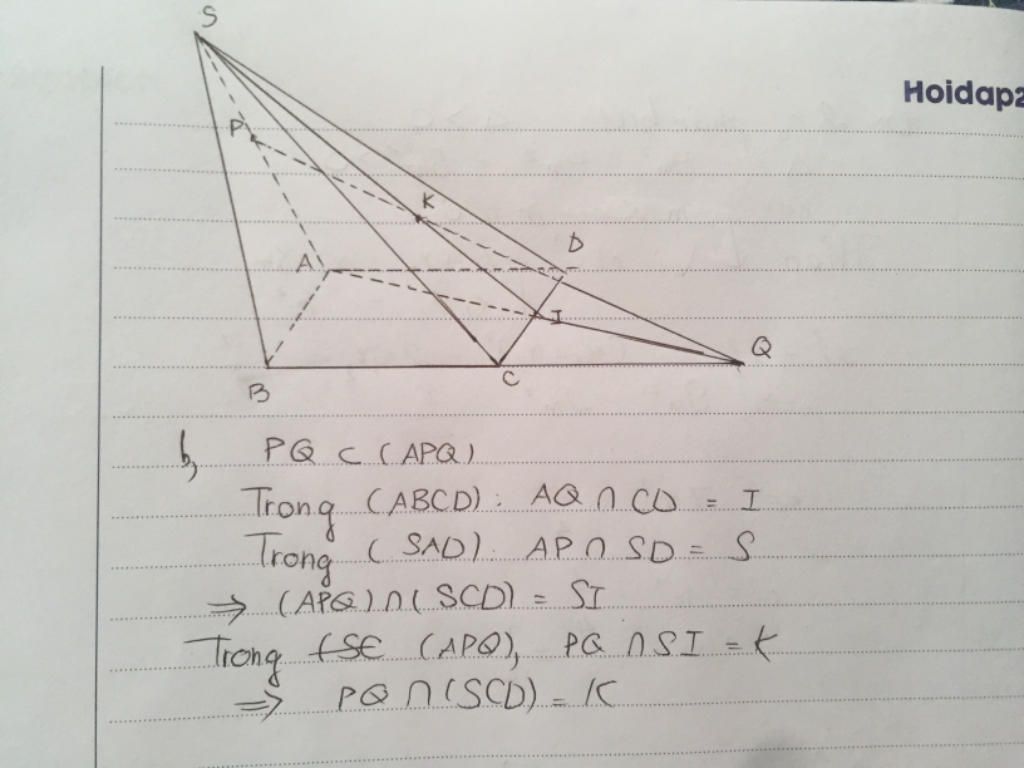 S
Hoidap2
P
K
D
A
I
Q
B
C
b, PQ ⊂ (APQ)
Trong (ABCD): AQ ∩ CD = I
Trong (SAD). AP ∩ SD = S
⇒ (APQ) ∩ (SCD) = SI
Trong (APQ), PQ ∩ SI = K
⇒ PQ ∩ (SCD) = K